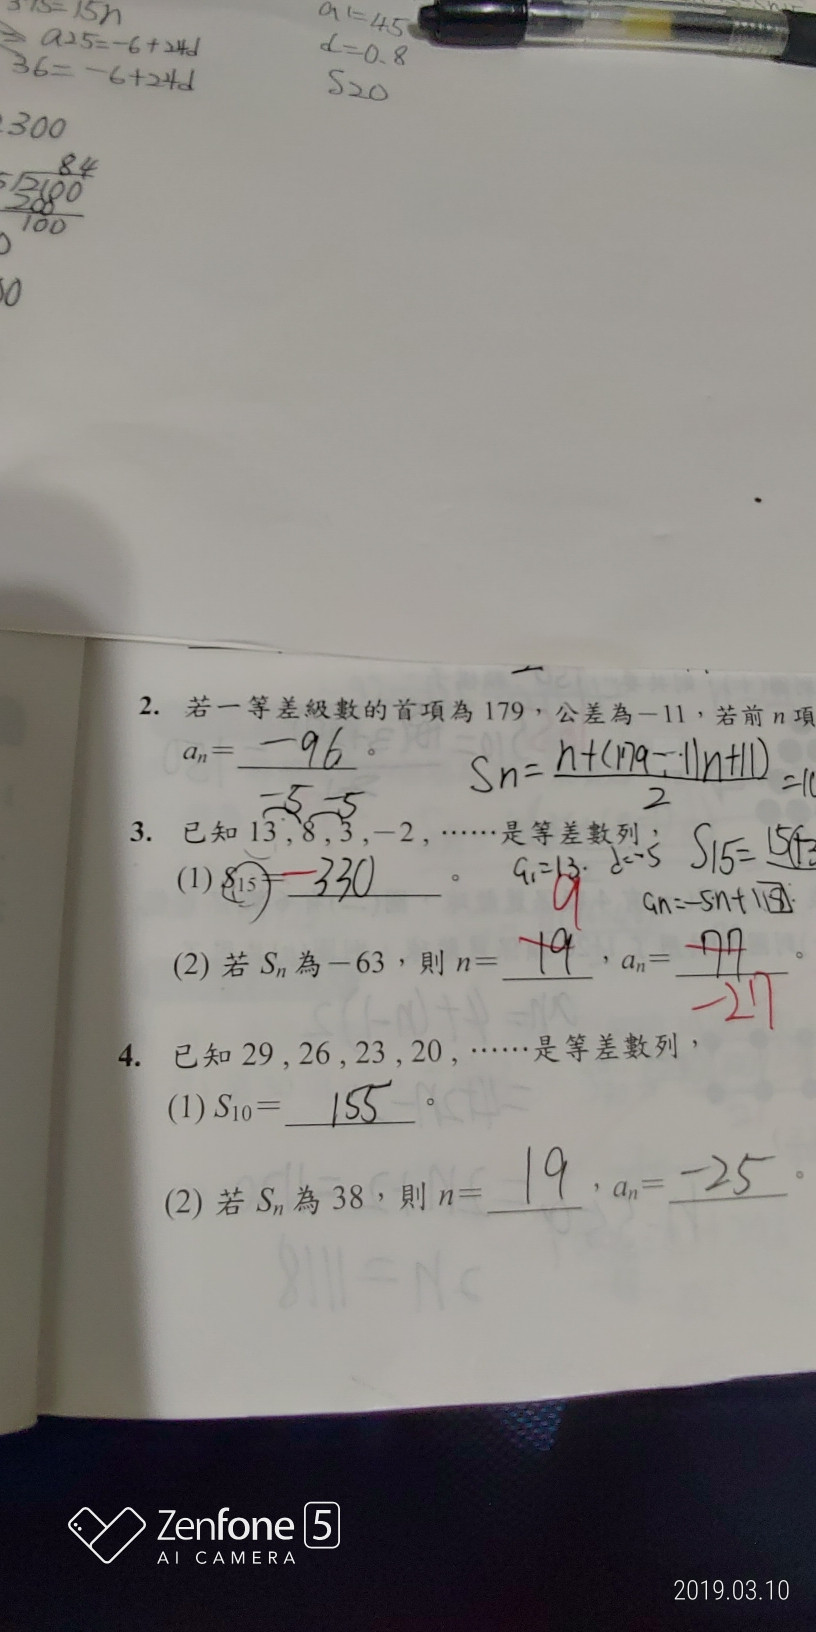 375=15n
a25=-6+24d
36=-6+24d
300
84
2100
200
100
a1=45
d=0.8
S20
2. 若一等差級數的首項為 179，公差為 -11，若前 n 項
an= -96 。
Sn= n+(179-11n+11) / 2 =
-5 -5
3. 已知 13 , 8 , 3 , -2 , ……是等差數列，
(1) S15= -330 。
a1=13. d=-5 S15=
an=-5n+18
9
(2) 若 Sn 為 -63，則 n= 19 ，an= -77 。
-27
4. 已知 29 , 26 , 23 , 20 , ……是等差數列，
(1) S10= 155 。
(2) 若 Sn 為 38，則 n= 19 ，an= -25 。
Zenfone 5
AI CAMERA
2019.03.10